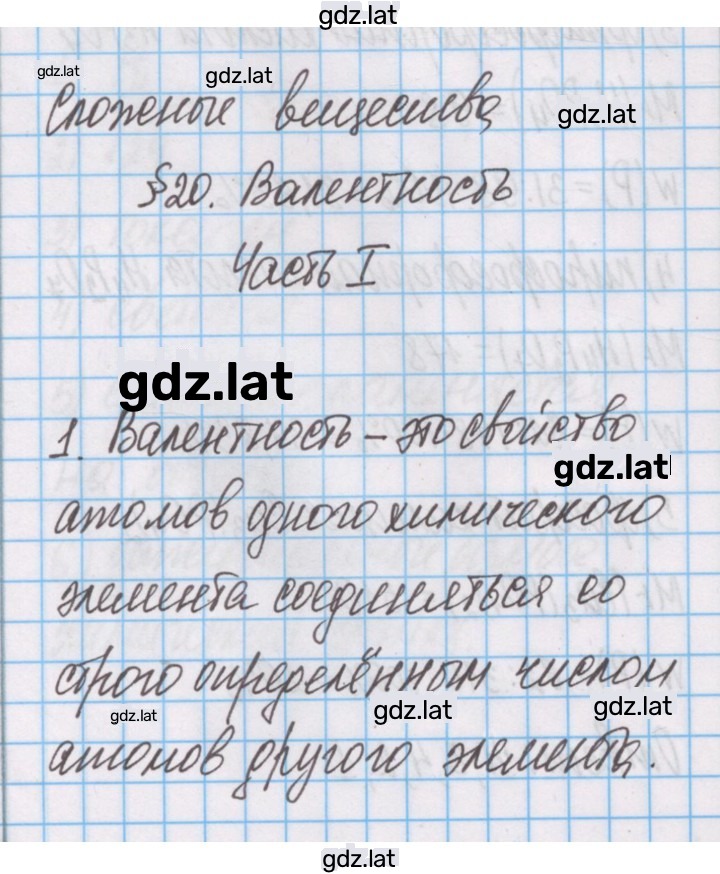 gdz.lat
gdz.lat
gdz.lat
Сложные вещества
gdz.lat
§20. Валентность
Часть I
gdz.lat
1. Валентность – это свойство
gdz.lat
атомов одного химического
элемента соединяться со
строго определённым числом
gdz.lat
gdz.lat
gdz.lat
атомов другого элемента.
gdz.lat